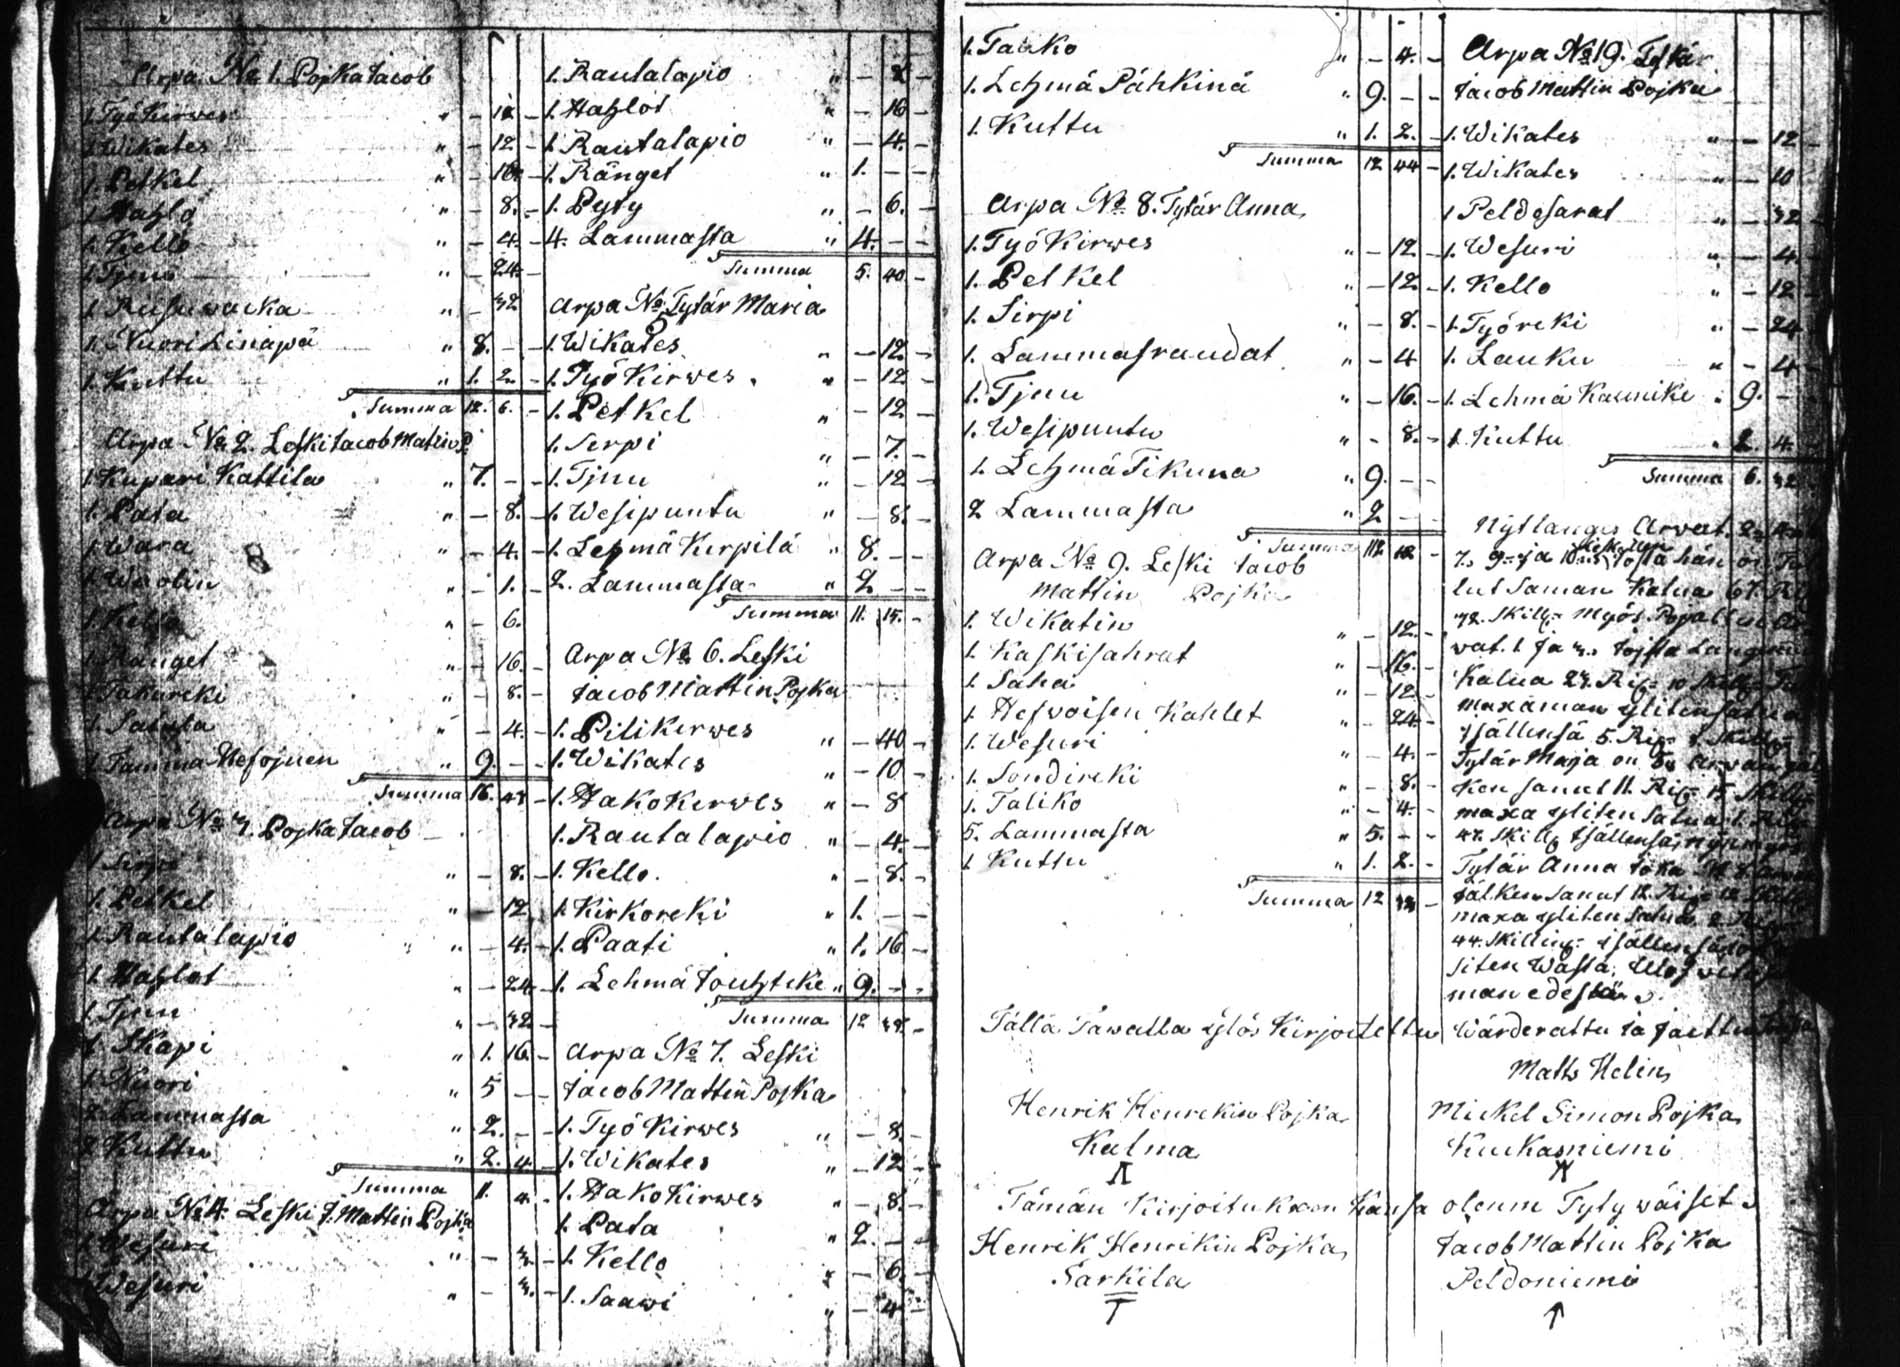 Arpa No 1. Pojka Jacob
1. Työ Kirwes " – 12 –
1. Wikates " – 12 –
1. Petkel " – 16 –
1. Hahlo " – 8. –
1. Kello " – 4. –
1. Tjnu " – 24 –
1. Reisuwacka " – 32
1. Nuori Linapä " 8. – –
1. Kuttu " 1. 2. –
Summa 12. 6. –
Arpa No 2. Leski Jacob Matin P.
1. Kupari Kattila " 7. – –
1. Pata " – 8. –
1. Wara " – 4. –
1. Wuolin " – 1. –
" – 6.
1. Ränget " – 16. –
1. Takareki " – 8. –
1. Satula " – 4. –
1. Tamma Hefojnen " 9. – –
Summa 16.
Arpa No 3. Pojka Jacob
1. Sirpi " – 8. –
1. Petkel " – 12 –
1. Rautalapio " – 4. –
1. Hahlot " – 24 –
1. Tjnu " – 32 –
1. Skapi " 1. 16. –
1. Nuori " 5 – –
2. Lammasta " 2. – –
2. Kuttu " 2. 4. –
Summa 11. 4. –
Arpa No 4. Leski J. Mattin Pojka
1. Wesuri " – 3. –
1. Wesuri " – 3. –
1. Rautalapio " – 2 –
1. Hahlot " – 16 –
1. Rautalapio " – 4. –
1. Ränget " 1. – –
1. Pyty " – 6. –
4. Lammasta " 4. – –
Summa 5. 40 –
Arpa No 5 Tytär Maria
1. Wikates " – 12. –
1. Työ Kirwes " – 12 –
1. Petkel " – 12 –
1. Serpi " – 7. –
1. Tjnu " – 12 –
1. Wesipuntu " – 8. –
1. Lehmä Kerpilä " 8. – –
2. Lammasta " 2 – –
Summa 11. 15. –
Arpa No 6. Leski
Jacob Mattin Pojka
1. Pilikerwes " – 40 –
1. Wikates " – 10 –
1. Hakokerwes " – 8
1. Rautalapio " – 4. –
1. Kello " – 8. –
1. Kirkoreki " 1. – –
1. Paati " 1. 16. –
1. Lehmä Jouhtike " 9. – –
Summa 12
Arpa No 7. Leski
Jacob Mattin Pojka
1. Työ Kirwes " – 8. –
1. Wikates " – 12 –
1. Hako Kirwes " – 8. –
1. Pata " 2. – –
1. Kello " – 6. –
1. Saawi " – 4 –
1. Taliko " – 4. –
1. Lehmä Pähkinä " 9. – –
1. Kuttu " 1. 2. –
Summa 12 44 –
Arpa No 8. Tytär Anna
1. Työ Kirwes " – 12. –
1. Petkel " – 12 –
1. Sirpi " – 8. –
1. Lammasraudat " – 4
1. Tjnu " – 16. –
1. Wesipuntu " – 8. –
1. Lehmä Tikuna " 9. – –
2 Lammasta " 2 – –
Summa 12 –
Arpa No 9. Leski Jacob
Mattin Pojka
1. Wikatin " – 12. –
1. Kaskisahrat " – 16. –
1. Saha " – 12. –
1. Hefwoisen Kahlet " – 24. –
1. Wesuri " – 4. –
1. Sondireki " – 8. –
1. Taliko " – 4. –
5. Lammasta " 5. – –
1. Kuttu " 1. 2. –
Summa 12 –
Arpa No 19. Tytär
Jacob Mattin Pojka
1. Wikates " – 12
1. Wikates " – 10
1 Peldosarat " – 32
1. Wesuri " – 4.
1. Kello " – 12
1. Työreki " – 24
1. Lauku " – 4
1. Lehmä Kaunike " 9. –
1. Kuttu " 2. 4. –
Summa 6. 32
Nyt langes Arwat.
7. 9. ja 10.
lut Saman Kalua 67.
Skill: Myös Pojallen
wat. 1. ja 3. joista Langnu
Kalua 27. Rix: 10 Skill:
maxaman ylitensatua
jsällensä 5. Rix: 1. Skill:
Tytär Maja on 5. Arwan
Ken Sanut 11. Rix: 15 Skill:
maxa yliten Satua 1.
47. Skill: jsällensä
Tytär Anna joka
jälken Sanut 12. Rix: 12 Skill:
maxa yliten Satua 2.
44. Skilling: jsällensä
siten Wasta. Ulos
man edestä.
Tällä Tawalla ylös Kirjoitettu Wärderattu ja Jaettu
Matts Helin
Henrik Henrekin Pojka Mickel Simon Pojka
Kalma Kuukasniemi
Tämän Kirjoituksen Kansa olemme Tytywäiset
Henrik Henrikin Pojka Jacob Mattin Pojka
Sarkila Peldoniemi